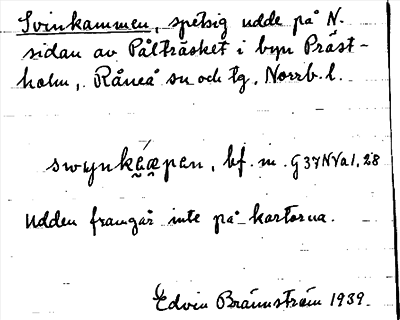 Svinkammen, spetsig udde på N.
sidan av Pålträsket i byn Präst-
holm, Råneå sn och tg, Norrb. l.
bf. m. G37NVa1,28
Udden framgår inte på kartorna.
Edvin Brännström 1939.